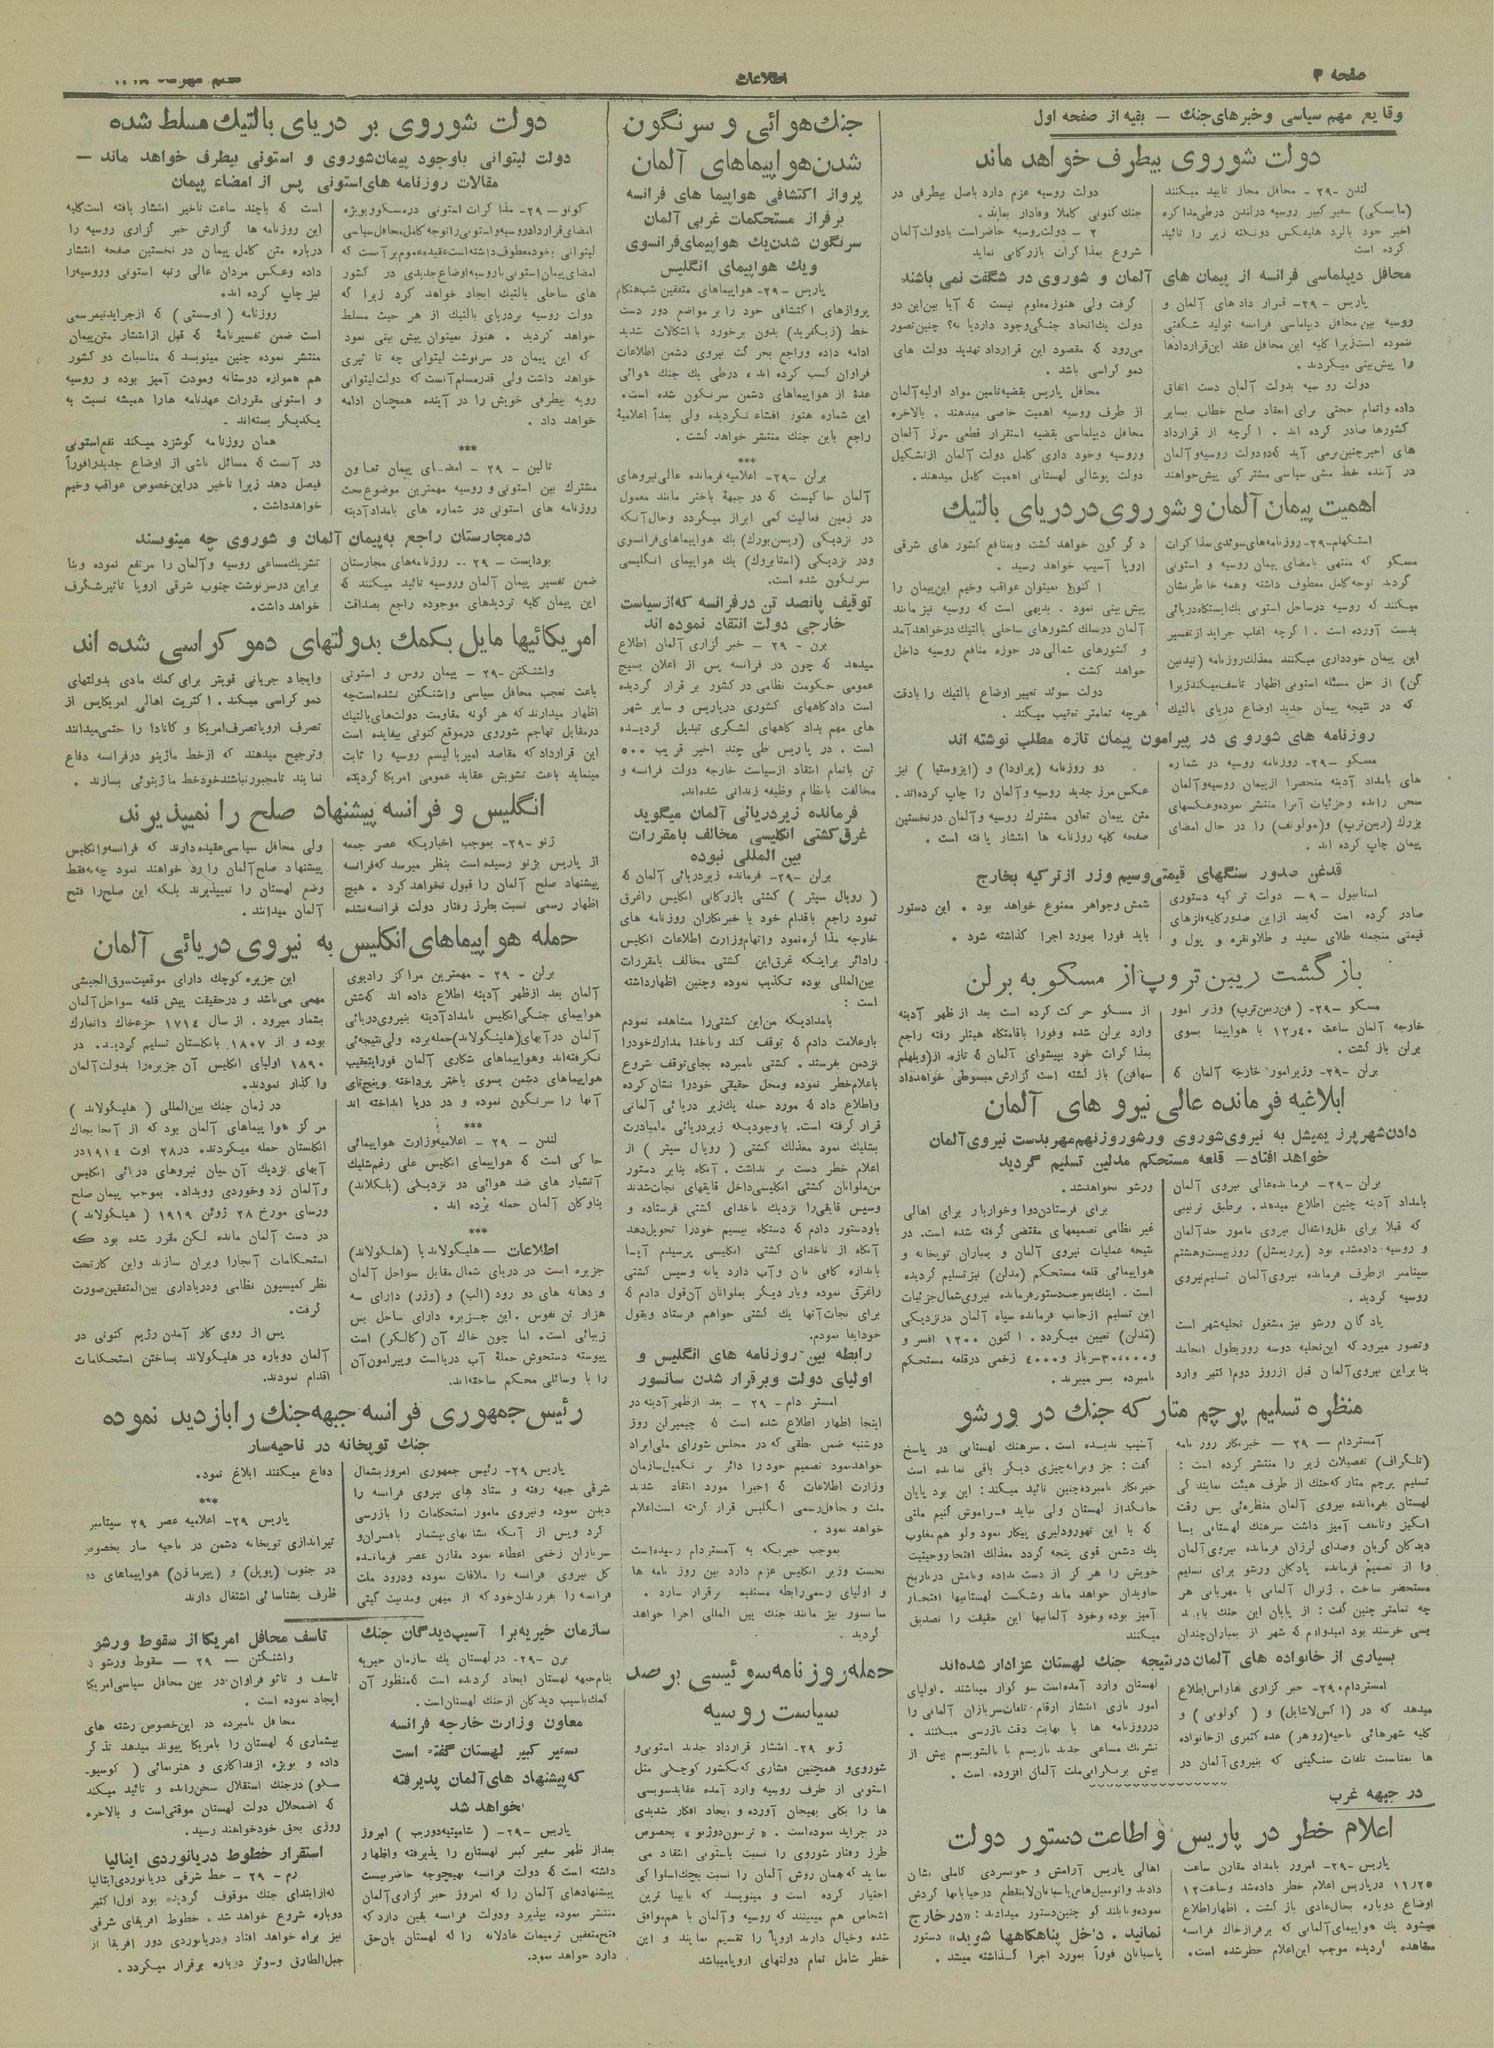 صفحه ۴
اطلاعات
وقایع مهم سیاسی و خبرهای جنك — بقیه از صفحه اول
دولت شوروی بیطرف خواهد ماند
لندن -۲۹- محافل مجاز تایید میکنند
(مایسکی) سفیر کبیر روسیه در لندن در طی مذاکره
اخیر خود بالرد هلیفکس دو نکته زیر را تائید
کرده است
دولت روسیه عزم دارد باصل بیطرفی در
جنك کنونی کاملا وفادار بماند.
۲ - دولت روسیه حاضر است با دولت آلمان
شروع بمذاکرات بازرگانی نماید
محافل دیپلماسی فرانسه از پیمان های آلمان و شوروی در شگفت نمی باشند
پاریس -۲۹- قرار داد های آلمان و
روسیه بین محافل دیپلماسی فرانسه تولید شگفتی
ننموده است زیرا کلیه این محافل عقد این قراردادها
را پیش بینی میکردند.
دولت روسیه بدولت آلمان دست اتفاق
داده و اتمام حجتی برای انعقاد صلح خطاب بسایر
کشورها صادر کرده اند . اگرچه از قرارداد
های اخیر چنین برمی آید که دو دولت روسیه و آلمان
در آینده خط مشی سیاسی مشترکی پیش خواهند
گرفت ولی هنوز معلوم نیست که آیا بین این دو
دولت یك اتحاد جنگی وجود دارد یا نه؟ چنین تصور
می‌رود که مقصود این قرارداد تهدید دولت های
دموکراسی باشد .
محافل پاریس بقضیه تامین مواد اولیه آلمان
از طرف روسیه اهمیت خاصی میدهند . بالاخره
محافل دیپلماسی بقضیه استقرار قطعی مرز آلمان
و روسیه و خود داری کامل دولت آلمان از تشکیل
دولت پوشالی لهستانی اهمیت کامل میدهند.
اهمیت پیمان آلمان و شوروی در دریای بالتیك
استکهلم-۲۹- روزنامه‌های سوئدی بمذاکرات
مسکو که منتهی بامضای پیمان روسیه و استونی
گردید توجه کامل معطوف داشته و همه خاطر نشان
میکنند که روسیه در ساحل استونی یك ایستگاه دریائی
بدست آورده است . اگرچه اغلب جراید از تفسیر
این پیمان خودداری میکنند معذلك روزنامه (تیدنین
گن) از حل مسئله استونی اظهار تاسف میکند زیرا
که در نتیجه پیمان جدید اوضاع دریای بالتیك
دگرگون خواهد گشت و بمنافع کشور های شرقی
اروپا آسیب خواهد رسید .
اکنون نمیتوان عواقب وخیم این پیمان را
پیش بینی نمود . بدیهی است که روسیه نیز مانند
آلمان در سلك کشورهای ساحلی بالتیك درخواهد آمد
و کشورهای شمالی در حوزه منافع روسیه داخل
خواهد گشت .
دولت سوئد تغییر اوضاع بالتیك را بادقت
هرچه تمامتر تعقیب میکند .
روزنامه های شوروی در پیرامون پیمان تازه مطلب نوشته اند
مسکو -۲۹- روزنامه روسیه در شماره
های بامداد آدینه منحصرا از پیمان روسیه و آلمان
سخن رانده و جزئیات آنرا منتشر نموده و عکسهای
بزرك (ریبن‌ترپ) و (مولوتف) را در حال امضای
پیمان چاپ کرده اند .
دو روزنامه (پراودا) و (ایزوستیا) نیز
عکس مرز جدید روسیه و آلمان را چاپ کرده‌اند .
متن پیمان تعاون مشترك روسیه و آلمان در نخستین
صفحه کلیه روزنامه ها انتشار یافته است .
قدغن صدور سنگهای قیمتی و سیم و زر از ترکیه بخارج
استانبول - ۹ - دولت ترکیه دستوری
صادر کرده است که بعد از این صدور کلیه فلزهای
قیمتی منجمله طلای سفید و طلا و نقره و پول و
شمش و جواهر ممنوع خواهد بود . این دستور
باید فورا بمورد اجرا گذاشته شود .
بازگشت ریبن تروپ از مسکو به برلن
مسکو -۲۹- (فن ریبن‌ترپ) وزیر امور
خارجه آلمان ساعت ۱۲٫۴۰ با هواپیما بسوی
برلن بازگشت .
برلن -۲۹- وزیر امور خارجه آلمان که
از مسکو حرکت کرده است بعد از ظهر آدینه
وارد برلن شده و فورا باقامتگاه هیتلر رفته راجع
بمذاکرات خود بپیشوای آلمان که تازه از (ویلهلم
سهافن) بازگشته است گزارش مبسوطی خواهد داد
ابلاغیه فرمانده عالی نیرو های آلمان
دادن شهر پرزیمیشل به نیروی شوروی و رشو روز نهم مهر بدست نیروی آلمان
خواهد افتاد — قلعه مستحکم مدلین تسلیم گردید
برلن -۲۹- فرمانده عالی نیروی آلمان
بامداد آدینه چنین اطلاع میدهد. برطبق ترتیبی
که قبلا برای نقل و انتقال نیروی مامور حد آلمان
و روسیه داده شده بود (پرزیمشل) روز بیست و هشتم
سپتامبر از طرف فرمانده نیروی آلمان تسلیم نیروی
روسیه گردید .
پادگان ورشو نیز مشغول تخلیه شهر است
و تصور میرود که این تخلیه دو سه روز بطول انجامد
بنابراین نیروی آلمان قبل از روز دوم اکتبر وارد
ورشو نخواهد شد.
برای فرستادن دوا و خواربار برای اهالی
غیر نظامی تصمیمهای مقتضی گرفته شده است. در
نتیجه عملیات نیروی آلمان و بمباران توپخانه و
هواپیمائی قلعه مستحکم (مدلن) نیز تسلیم گردیده
است . اینك بموجب دستور فرمانده نیروی شمال جزئیات
این تسلیم از جانب فرمانده سپاه آلمان در نزدیکی
(مدلن) تعیین میگردد . اکنون ۱۲۰۰ افسر و
و ۳۰،۰۰۰ سرباز و ۴۰۰۰ زخمی در قلعه مستحکم
نامبرده بسر میبرند .
منظره تسلیم پرچم متارکه جنك در ورشو
آمستردام — ۲۹ — خبرنگار روزنامه
(تلگراف) تفصیلات زیر را منتشر کرده است :
تسلیم پرچم متارکه جنك از طرف هیئت نمایندگی
لهستان بفرمانده نیروی آلمان منظره‌ئی بس رقت
انگیز و تاسف آمیز داشت سرهنك لهستانی با
دیدگان گریان و صدای لرزان فرمانده نیروی آلمان
را از تصمیم فرمانده پادگان ورشو برای تسلیم
مستحضر ساخت . ژنرال آلمانی با مهربانی هر
چه تمامتر چنین گفت : از پایان این جنك باید
بسی خرسند بود امیدوارم که شهر از بمباران چندان
آسیب ندیده است . سرهنك لهستانی در پاسخ
گفت : جز ویرانه چیزی دیگر باقی نمانده است
خبرنگار نامبرده چنین تائید میکند : این بود پایان
جانگداز لهستان ولی نباید فراموش کنیم ملتی
که با این تهور و دلیری پیکار نمود ولو هم مغلوب
یك دشمن قوی پنجه گردد معذلك افتخار و حیثیت
خویش را هرگز از دست نداده و نامش در تاریخ
جاویدان خواهد ماند و شکست لهستانیها افتخار
آمیز بوده و خود آلمانیها این حقیقت را تصدیق
میکنند
بسیاری از خانواده های آلمان در نتیجه جنك لهستان عزادار شده‌اند
امستردام-۲۹- خبر گزاری هاواس اطلاع
میدهد که در (اکس لاشاپل) و (کولونی) و
کلیه شهرهائی ناحیه (روهر) عده کثیری از خانواده
ها بمناسبت تلفات سنگینی که بنیروی آلمان در
لهستان وارد آمده است سوگوار میباشند . اولیای
امور نازی انتشار ارقام تلفات سربازان آلمانی را
در روزنامه ها با نهایت دقت بازرسی میکنند .
تشریك مساعی جدید نازیسم با بالشویسم بیش از
پیش بر نگرانی ملت آلمان افزوده است .
در جبهه غرب
اعلام خطر در پاریس و اطاعت دستور دولت
پاریس -۲۹- امروز بامداد مقارن ساعت
۱۱٫۲۵ در پاریس اعلام خطر داده شد و ساعت ۱۲
اوضاع دوباره بحال عادی بازگشت . اظهار اطلاع
میشود یك هواپیمای آلمانی که بر فراز خاك فرانسه
مشاهده گردیده موجب این اعلام خطر شده است.
اهالی پاریس آرامش و خونسردی کاملی نشان
دادند و اتومبیل‌های پاسبانان لاینقطع در خیابانها گردش
نموده و با بلندگو چنین دستور میدادند : «در خارج
نمانید . داخل پناهگاهها شوید» دستور
پاسبانان فوراً بمورد اجرا گذاشته میشد .
جنك هوائی و سرنگون
شدن هواپیماهای آلمان
پرواز اکتشافی هواپیما های فرانسه
بر فراز مستحکمات غربی آلمان
سرنگون شدن یك هواپیمای فرانسوی
و یك هواپیمای انگلیس
پاریس -۲۹- هواپیماهای متفقین شب هنگام
پروازهای اکتشافی خود را بر مواضع دور دست
خط (زیگفرید) بدون برخورد باشکالات شدید
ادامه داده و راجع بحرکت نیروی دشمن اطلاعات
فراوان کسب کرده اند ، در طی یك جنك هوائی
عدهٔ از هواپیماهای دشمن سرنگون شده است.
این شماره هنوز افشاء نگردیده ولی بعداً اعلامیهٔ
راجع باین جنك منتشر خواهد گشت .
***
برلن -۲۹- اعلامیه فرمانده عالی نیروهای
آلمان حاکیست که در جبههٔ باختر مانند معمول
در زمین فعالیت کمی ابراز میگردد و حال آنکه
در نزدیکی (ویسن‌بورك) یك هواپیماهای فرانسوی
و در نزدیکی (اسنابروك) یك هواپیمای انگلیسی
سرنگون شده است.
توقیف پانصد تن در فرانسه که از سیاست
خارجی دولت انتقاد نموده اند
برن - ۲۹ - خبر گزاری آلمان اطلاع
میدهد که چون در فرانسه پس از اعلان بسیج
عمومی حکومت نظامی در کشور برقرار گردیده
است دادگاههای کشوری در پاریس و سایر شهر
های مهم بدادگاههای لشگری تبدیل گردیده
است . در پاریس طی چند اخیر قریب ۵۰۰
تن باتهام انتقاد از سیاست خارجه دولت فرانسه و
مخالفت با نظام وظیفه زندانی شده‌اند.
فرمانده زیر دریائی آلمان میگوید
غرق کشتی انگلیسی مخالف بامقررات
بین المللی نبوده
برلن -۲۹- فرمانده زیر دریائی آلمان که
( رویال سپتر ) کشتی بازرگانی انگلیس را غرق
نمود راجع باقدام خود با خبرنگاران روزنامه های
خارجه مذاکره نمود و اتهام وزارت اطلاعات انگلیس
را دائر براینکه غرق این کشتی مخالف بامقررات
بین‌المللی بوده تکذیب نموده و چنین اظهار داشته
است :
بامدادیکه من این کشتی را مشاهده نمودم
با و علامت دادم که توقف کند و ناخدا مدارك خود را
نزد من بفرستد . کشتی نامبرده بجای توقف شروع
باعلام خطر نموده و محل حقیقی خود را نشان کرده
و اطلاع داد که مورد حمله یك زیر دریائی آلمانی
قرار گرفته است. با وجودیکه زیر دریائی ما مبادرت
بشلیك نمود معذلك کشتی ( رویال سپتر ) از
اعلام خطر دست بر نداشت . آنگاه بنابر دستور
من ملوانان کشتی انگلیسی داخل قایقهای نجات شدند
و سپس قایقی را نزدیك ناخدای کشتی فرستاده و
باو دستور دادم که دستگاه بیسیم خود را تحویل دهد
آنگاه از ناخدای کشتی انگلیسی پرسیدم آیا
باندازه کافی نان و آب دارد یا نه و سپس کشتی
را غرق نموده و بار دیگر بملوانان آن قول دادم که
برای نجات آنها یك کشتی خواهم فرستاد و بقول
خود ایفا نمودم.
رابطه بین روزنامه های انگلیس و
اولیای دولت و برقرار شدن سانسور
امستر دام - ۲۹ - بعد از ظهر آدینه در
اینجا اظهار اطلاع شده است که چیمبرلن روز
دوشنبه ضمن نطقی که در مجلس شورای ملی ایراد
خواهد نمود تصمیم خود را دائر بر تکمیل سازمان
وزارت اطلاعات که اخیرا مورد انتقاد شدید
ملت و محافل رسمی انگلیس قرار گرفته است اعلام
خواهد نمود .
بموجب خبریکه به آمستردام رسیده است
نخست وزیر انگلیس عزم دارد بین روزنامه ها
و اولیای رسمی رابطه مستقیم برقرار سازد .
سانسور نیز مانند جنك بین المللی اجرا خواهد
گردید .
حمله روزنامه سوئیسی بر ضد
سیاست روسیه
ژنو -۲۹- انتشار قرارداد جدید استونی و
شوروی و همچنین فشاری که بکشور کوچکی مثل
استونی از طرف روسیه وارد آمده عقاید سویسی
ها را بکلی بهیجان آورده و ایجاد افکار شدیدی
در جراید نموده است . «تریبون دو ژنو» بخصوص
طرز رفتار شوروی را نسبت باستونی انتقاد می
نماید که همان روش آلمان را نسبت بچك اسلواکی
اختیار کرده است و مینویسد که نابینا ترین
اشخاص هم میبینند که روسیه و آلمان با هم موافق
شده و خیال دارند اروپا را تقسیم نمایند و این
خطر شامل تمام دولتهای اروپا میباشد
دولت شوروی بر دریای بالتیك مسلط شده
دولت لیتوانی باوجود پیمان شوروی و استونی بیطرف خواهد ماند —
مقالات روزنامه های استونی پس از امضاء پیمان
کونو — ۲۹- مذاکرات استونی در مسکو و بویژه
امضای قرارداد روسیه و استونی را توجه کامل محافل سیاسی
لیتوانی بخود معطوف داشته است عقیده عموم بر آنست که
امضای پیمان استونی با روسیه اوضاع جدیدی در کشور
های ساحلی بالتیك ایجاد خواهد کرد زیرا که
دولت روسیه بر دریای بالتیك از هر حیث مسلط
خواهد گردید . هنوز نمیتوان پیش بینی نمود
که این پیمان در سرنوشت لیتوانی چه تاثیری
خواهد داشت ولی قدر مسلم آنست که دولت لیتوانی
رویه بیطرفی خویش را در آینده همچنان ادامه
خواهد داد .
***
تالین - ۲۹ - امضای پیمان تعاون
مشترك بین استونی و روسیه مهمترین موضوع بحث
روزنامه های استونی در شماره های بامداد آدینه
است که باچند ساعت تاخیر انتشار یافته است کلیه
این روزنامه ها گزارش خبر گزاری روسیه را
درباره متن کامل پیمان در نخستین صفحه انتشار
داده و عکس مردان عالی رتبه استونی و روسیه را
نیز چاپ کرده اند.
روزنامه (اوستی) که از جراید نیمرسمی
است ضمن تفسیرنامهٔ که قبل از انتشار متن پیمان
منتشر نموده چنین مینویسد که مناسبات دو کشور
هم همواره دوستانه و مودت آمیز بوده و روسیه
و استونی مقررات عهدنامه هارا همیشه نسبت به
یکدیگر بسته‌اند .
همان روزنامه گوشزد میکند نفع استونی
در آنست که مسائل ناشی از اوضاع جدید را فوراً
فیصل دهد زیرا تاخیر در این خصوص عواقب وخیم
خواهد داشت.
در مجارستان راجع به پیمان آلمان و شوروی چه مینویسند
بوداپست - ۲۹ - روزنامه‌های مجارستان
ضمن تفسیر پیمان آلمان و روسیه تائید میکنند که
این پیمان کلیه تردیدهای موجوده راجع بصداقت
تشریك مساعی روسیه و آلمان را مرتفع نموده و بنا
براین در سرنوشت جنوب شرقی اروپا تاثیر شگرف
خواهد داشت.
امریکائیها مایل بکمك بدولتهای دموکراسی شده اند
واشنگتن -۲۹ - پیمان روس و استونی
باعث تعجب محافل سیاسی واشنگتن نشده است چه
اظهار میدارند که هر گونه مقاومت دولت‌های بالتیك
در مقابل تهاجم شوروی در موقع کنونی بیفایده است
این قرارداد که مقاصد امپریالیسم روسیه را ثابت
مینماید باعث تشویش عقاید عمومی امریکا گردیده
و ایجاد جریانی قویتر برای کمك مادی بدولتهای
دموکراسی میکند . اکثریت اهالی امریکا پس از
تصرف اروپا تصرف امریکا و کانادا را حتمی میدانند
و ترجیح میدهند که از خط ماژینو در فرانسه دفاع
نمایند تا مجبور نباشند خود خط ماژینوئی بسازند .
انگلیس و فرانسه پیشنهاد صلح را نمیپذیرند
ژنو -۲۹- بموجب اخباریکه عصر جمعه
از پاریس بژنو رسیده است بنظر میرسد که فرانسه
پیشنهاد صلح آلمان را قبول نخواهد کرد . هیچ
اظهار رسمی نسبت بطرز رفتار دولت فرانسه نشده
ولی محافل سیاسی عقیده دارند که فرانسه و انگلیس
پیشنهاد صلح آلمان را رد خواهند نمود چه نه فقط
وضع لهستان را نمیپذیرند بلکه این صلح را فتح
آلمان میدانند .
حمله هواپیماهای انگلیس به نیروی دریائی آلمان
برلن - ۲۹ - مهمترین مراکز رادیوی
آلمان بعد از ظهر آدینه اطلاع داده اند که شش
هواپیمای جنگی انگلیس بامداد آدینه بنیروی دریائی
آلمان در آبهای (هلیگولاند) حمله برده ولی نتیجه‌ئی
نگرفته‌اند و هواپیماهای شکاری آلمان فورا بتعقیب
هواپیماهای دشمن بسوی باختر پرداخته و پنج تای
آنها را سرنگون نموده و در دریا انداخته اند
***
لندن - ۲۹ - اعلامیه وزارت هواپیمائی
حاکی است که هواپیمای انگلیس علی رغم شلیك
آتشبار های ضد هوائی در نزدیکی (بلگلاند)
بناوگان آلمان حمله برده اند .
***
اطلاعات — هلیگولاند یا (هلگولاند)
جزیره است در دریای شمال مقابل سواحل آلمان
و دهانه های دو رود (الب) و (وزر) دارای سه
هزار تن نفوس . این جزیره دارای ساحل بس
زیبائی است. اما چون خاك آن (کالکر) است
پیوسته دستخوش حملهٔ آب دریا است و پیرامون آن
را با وسائلی محکم ساخته‌اند.
این جزیره کوچك دارای موقعیت سوق‌الجیشی
مهمی می‌باشد و در حقیقت پیش قلعه سواحل آلمان
بشمار میرود . از سال ۱۷۱۴ جزء خاك دانمارك
بوده و از ۱۸۰۷ بانگلستان تسلیم گردید. در
۱۸۹۰ اولیای انگلیس آن جزیره را بدولت آلمان
واگذار نمودند.
در زمان جنك بین‌المللی ( هلیگولاند )
مرکز هوا پیماهای آلمان بود که از آنجا بخاك
انگلستان حمله میکردند. در ۲۸ اوت ۱۹۱۴ در
آبهای نزدیك آن میان نیروهای دریائی انگلیس
و آلمان زد و خوردی رویداد. بموجب پیمان صلح
ورسای مورخ ۲۸ ژوئن ۱۹۱۹ ( هلیگولاند )
در دست آلمان مانده لکن مقرر شده بود که
استحکامات آنجا را ویران سازند و این کار تحت
نظر کمیسیون نظامی و دریاداری بین‌المتفقین صورت
گرفت.
پس از روی کار آمدن رژیم کنونی در
آلمان دوباره در هلیگولاند بساختن استحکامات
اقدام نمودند.
رئیس جمهوری فرانسه جبهه جنك را بازدید نموده
جنك توپخانه در ناحیه سار
پاریس -۲۹- رئیس جمهوری امروز بشمال
شرقی جبهه رفته و ستاد های نیروی فرانسه را
دیدن نموده و نیروی مامور استحکامات را بازرسی
کرد و پس از آنکه نشانهای بیشمار بافسران و
سربازان زخمی اعطاء نمود مقارن عصر فرمانده
کل نیروی فرانسه را ملاقات نموده و درود ملت
فرانسه را بفرزندان خود که از میهن و مدنیت گیتی
دفاع میکنند ابلاغ نمود.
***
پاریس -۲۹- اعلامیه عصر ۲۹ سپتامبر
تیراندازی توپخانه دشمن در ناحیه سار بخصوص
در جنوب (پوپل) و (پیرمازن) هواپیماهای دو
طرف بشناسائی اشتغال دارند
سازمان خیریه برا آسیب دیدگان جنك
برن -۲۹- در لهستان یك سازمان خیریه
بنام جبهه لهستان ایجاد گردیده است که منظور آن
کمك باسیب دیدگان از جنك لهستان است.
معاون وزارت خارجه فرانسه
بسفیر کبیر لهستان گفته است
که پیشنهاد های آلمان پذیرفته
نخواهد شد
پاریس -۲۹- ( شامپتیه دوریب ) امروز
بعد از ظهر سفیر کبیر لهستان را پذیرفته و اظهار
داشته است که دولت فرانسه بهیچوجه حاضر نیست
پیشنهادهای آلمان را که امروز خبر گزاری آلمان
منتشر نموده بپذیرد و دولت فرانسه یقین دارد که
فتح متفقین ترمیمات عادلانه را که لهستان بان حق
دارد خواهد نمود.
تاسف محافل امریکا از سقوط ورشو
واشنگتن — ۲۹ — سقوط ورشو
تاسف و تاثر فراوان در بین محافل سیاسی امریکا
ایجاد نموده است .
محافل نامبرده در این خصوص رشته های
بیشماری که لهستان را بامریکا پیوند میدهد تذکر
داده و بویژه از فداکاری و هنرنمائی (کوسیو
سکو) در جنك استقلال سخن رانده و تائید میکند
که اضمحلال دولت لهستان موقتی است و بالاخره
روزی بحق خود خواهند رسید.
استقرار خطوط دریانوردی ایتالیا
رم - ۲۹ - خط شرقی دریانوردی ایتالیا
که از ابتدای جنك موقوف گردیده بود اول اکتبر
دوباره شروع خواهد شد . خطوط افریقای شرقی
نیز براه خواهد افتاد و دریانوردی دور افریقا از
جبل‌الطارق و سوئز دوباره برقرار میگردد .